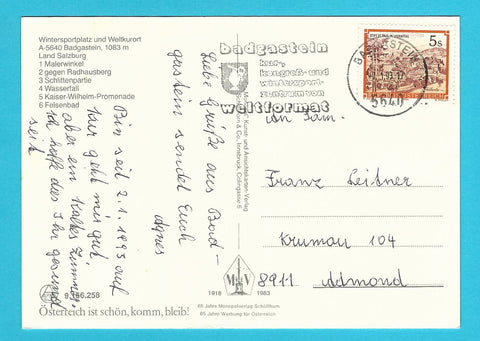 Wintersportplatz und Weltkurort
A-5640 Badgastein, 1083 m
Land Salzburg
1 Malerwinkel
2 gegen Radhausberg
3 Schlittenpartie
4 Wasserfall
5 Kaiser-Wilhelm-Promenade
6 Felsenbad
badgastein
kur-,
kongreß- und
wintersport-
zentrum von
weltformat
BADGASTEIN
5640
5s
REPUBLIK ÖSTERREICH
Liebe Grüße aus Bad-
gastein sendet Euch
Agnes
Bin seit 2.1.1993 auf
Kur geht mir gut,
aber ein kaltes Zimmer.
Ich hoffe das Ihr gesund
seit
An Fam.
Franz Leitner
Krumau 104
8911 Admond
Kunst- und Ansichtskarten-Verlag
Innsbruck, Colingasse 6
1918 1983
65 Jahre Monopolverlag Schöllhorn
65 Jahre Werbung für Österreich
9.186.258
Österreich ist schön, komm, bleib!